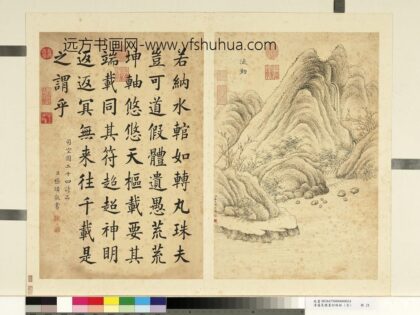 远方书画网-www.yfshuhua.com
流動
若納水輨如轉丸珠夫
豈可道假體遺愚荒荒
坤軸悠悠天樞載要其
端載同其符超超神明
返返冥無来往千載是
之謂乎
司空圖二十四詩品